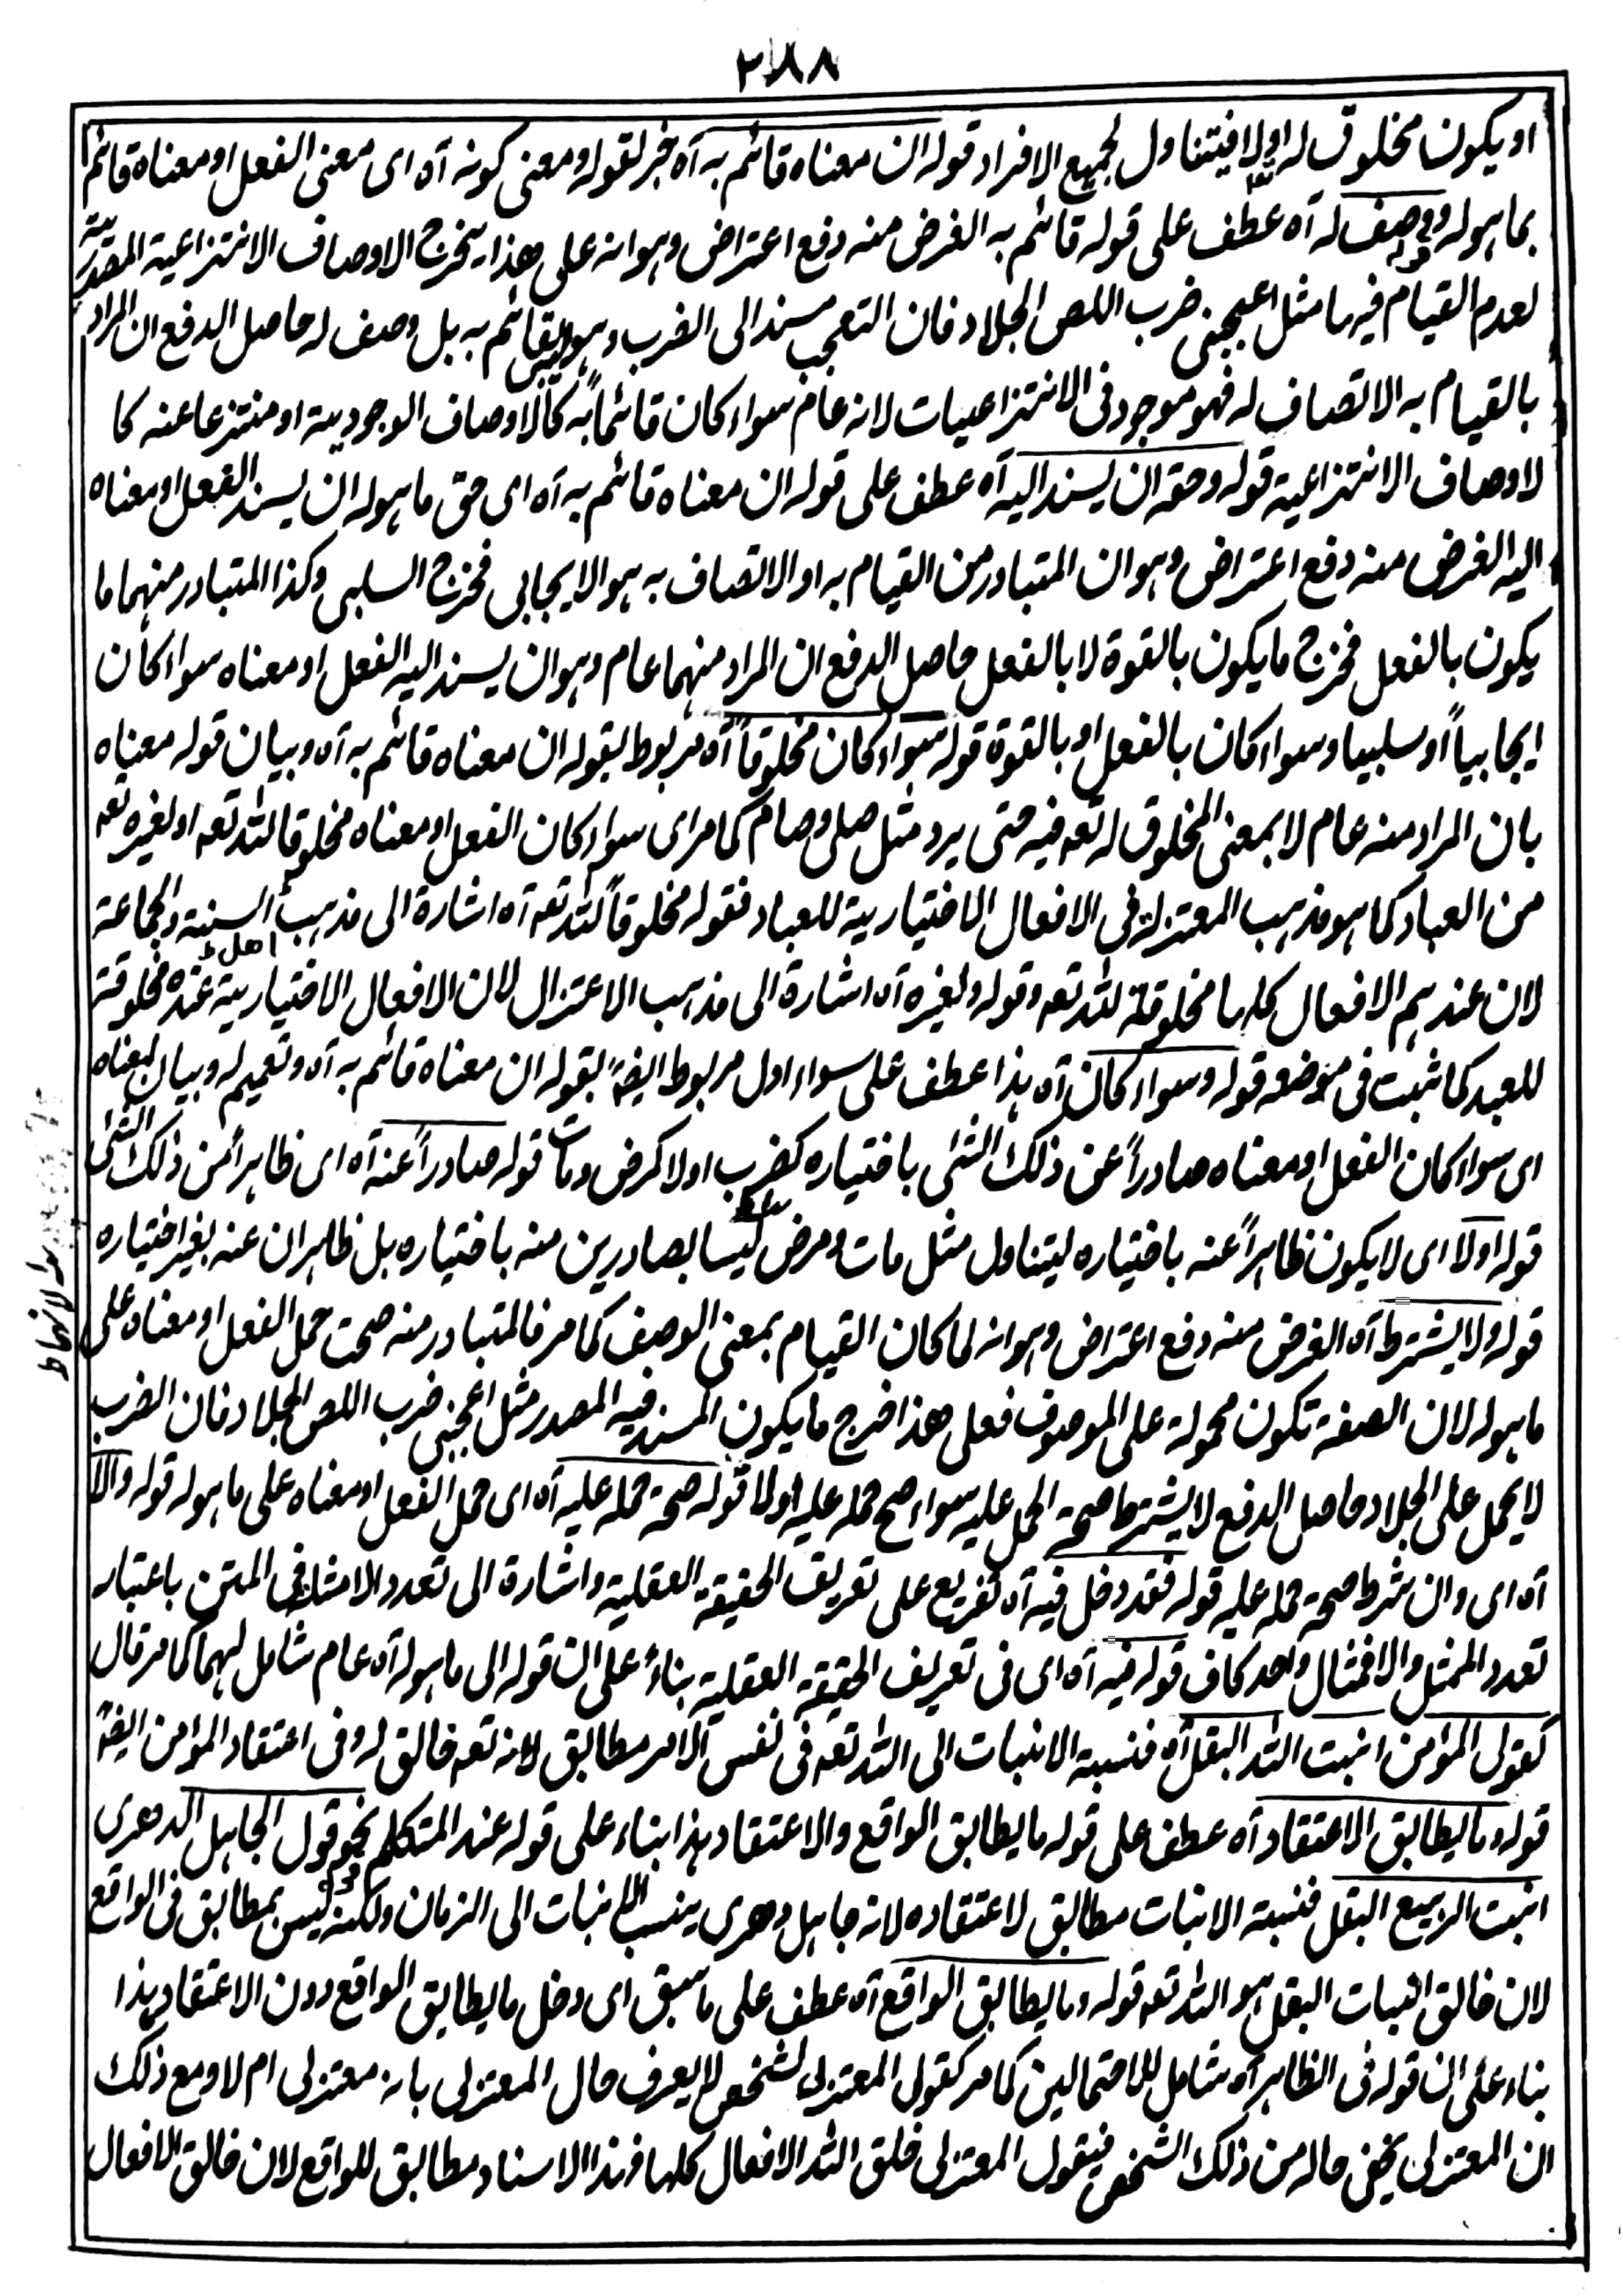 ٢٨٨
او يكون مخلوق له اولا فيتناول لجميع الافراد قوله ان معناه قائم به آه خبر لقوله ومعنى كونه آه اى معنى الفعل او معناه قائم
بما هو له قوله ووصف له آه عطف على قوله قائم به الغرض منه دفع اعتراض وهو انه على هذا يخرج الاوصاف الانتزاعية المصدرية
لعدم القيام فيها مثل اعجبنى ضرب اللص الجلاد فان التعجب مسند الى الضرب وهو ليس بقائم به بل وصف له حاصل الدفع ان المراد
بالقيام به الاتصاف له فهو موجود فى الانتزاعيات لانه عام سواء كان قائماً به كالاوصاف الوجودية او منتزعا عنه كا
لاوصاف الانتزاعية قوله وحقه ان يسند اليه آه عطف على قوله ان معناه قائم به آه اى حق ما هو له ان يسند الفعل او معناه
اليه الغرض منه دفع اعتراض وهو ان المتبادر من القيام به او الاتصاف به هو الايجابى فخرج السلبى وكذا المتبادر منهما ما
يكون بالفعل فخرج ما يكون بالقوة لا بالفعل حاصل الدفع ان المراد منهما عام وهو ان يسند اليه الفعل او معناه سواء كان
ايجابياً او سلبيا وسواء كان بالفعل او بالقوة قوله سواء كان مخلوقاً آه مربوط بقوله ان معناه قائم به آه وبيان قوله معناه
بان المراد منه عام لا بمعنى المخلوق له تعه فيه حتى يرد مثل صلى وصام كما مر اى سواء كان الفعل او معناه مخلوقا لله تعه او لغيره تعه
من العباد كما هو مذهب المعتزلة فى الافعال الاختيارية للعباد فقوله مخلوقاً لله تعه آه اشارة الى مذهب اهل السنية والجماعة
لان عندهم الافعال كلها مخلوقة لله تعه وقوله ولغيره آه اشارة الى مذهب الاعتزال لان الافعال الاختيارية عنده مخلوقة
للعبد كما ثبت فى موضعه قوله وسواء كان آه هذا عطف على سواء اول مربوط ايضً بقوله ان معناه قائم به آه وتعميم له وبيان لمعناه
اى سواء كان الفعل او معناه صادراً عن ذلك الشئ باختياره كضرب اولا كمرض ومات قوله صادراً عنه آه اى ظاهراً من ذلك الشئ
قوله اولا اى لا يكون ظاهراً عنه باختياره ليتناول مثل مات ومرض ليسا بصادرين منه باختياره بل ظاهران عنه بغير اختياره
قوله ولا يشترط آه الغرض منه دفع اعتراض وهو انه لما كان القيام بمعنى الوصف كما مر فالمتبادر منه صحت حمل الفعل او معناه على
ما هو له لان الصفة تكون محمولة على الموصوف فعلى هذا خرج ما يكون المسند فيه المصدر مثل اعجبنى ضرب اللص الجلاد فان الضرب
لا يحمل على الجلاد وحاصل الدفع لا يشترط صحة الحمل عليه سواء صح حمله عليه اولا قوله صحة حمله عليه آه اى حمل الفعل او معناه على ما هو له قوله والا
آه اى وان شرط صحة حمله عليه قوله فقد دخل فيه آه تفريع على تعريف الحقيقة العقلية واشارة الى تعدد الامثلة فى المتن باعتبار
تعدد الممثل والا فمثال واحد كاف قوله فيه آه اى فى تعريف الحقيقة العقلية بناءً على ان قوله الى ما هو له آه عام شامل لهما كما مر قال
كقول المؤمن انبت الله البقل آه فنسبة الانبات الى الله تعه فى نفس الامر مطابق لانه تعه خالق له وفى اعتقاد المؤمن ايضً
قوله وما يطابق الاعتقاد آه عطف على قوله ما يطابق الواقع والاعتقاد هذا بناء على قوله عند المتكلم نحو قول الجاهل الدهرى
انبت الربيع البقل فنسبة الانبات مطابق لاعتقاده لانه جاهل دهرى ينسب الانبات الى الزمان ولكنه ليس بمطابق فى الواقع
لان خالق انبات البقل هو الله تعه قوله وما يطابق الواقع آه عطف على ما سبق اى دخل ما يطابق الواقع دون الاعتقاد هذا
بناء على ان قوله فى الظاهر آه شامل للاحتمالين كما مر كقول المعتزلى لشخص لا يعرف حال المعتزلى بانه معتزلى ام لا ومع ذلك
ان المعتزلى يخفى حاله من ذلك الشخص فيقول المعتزلى خلق الله الافعال كلها فهذا الاسناد مطابق للواقع لان خالق الافعال